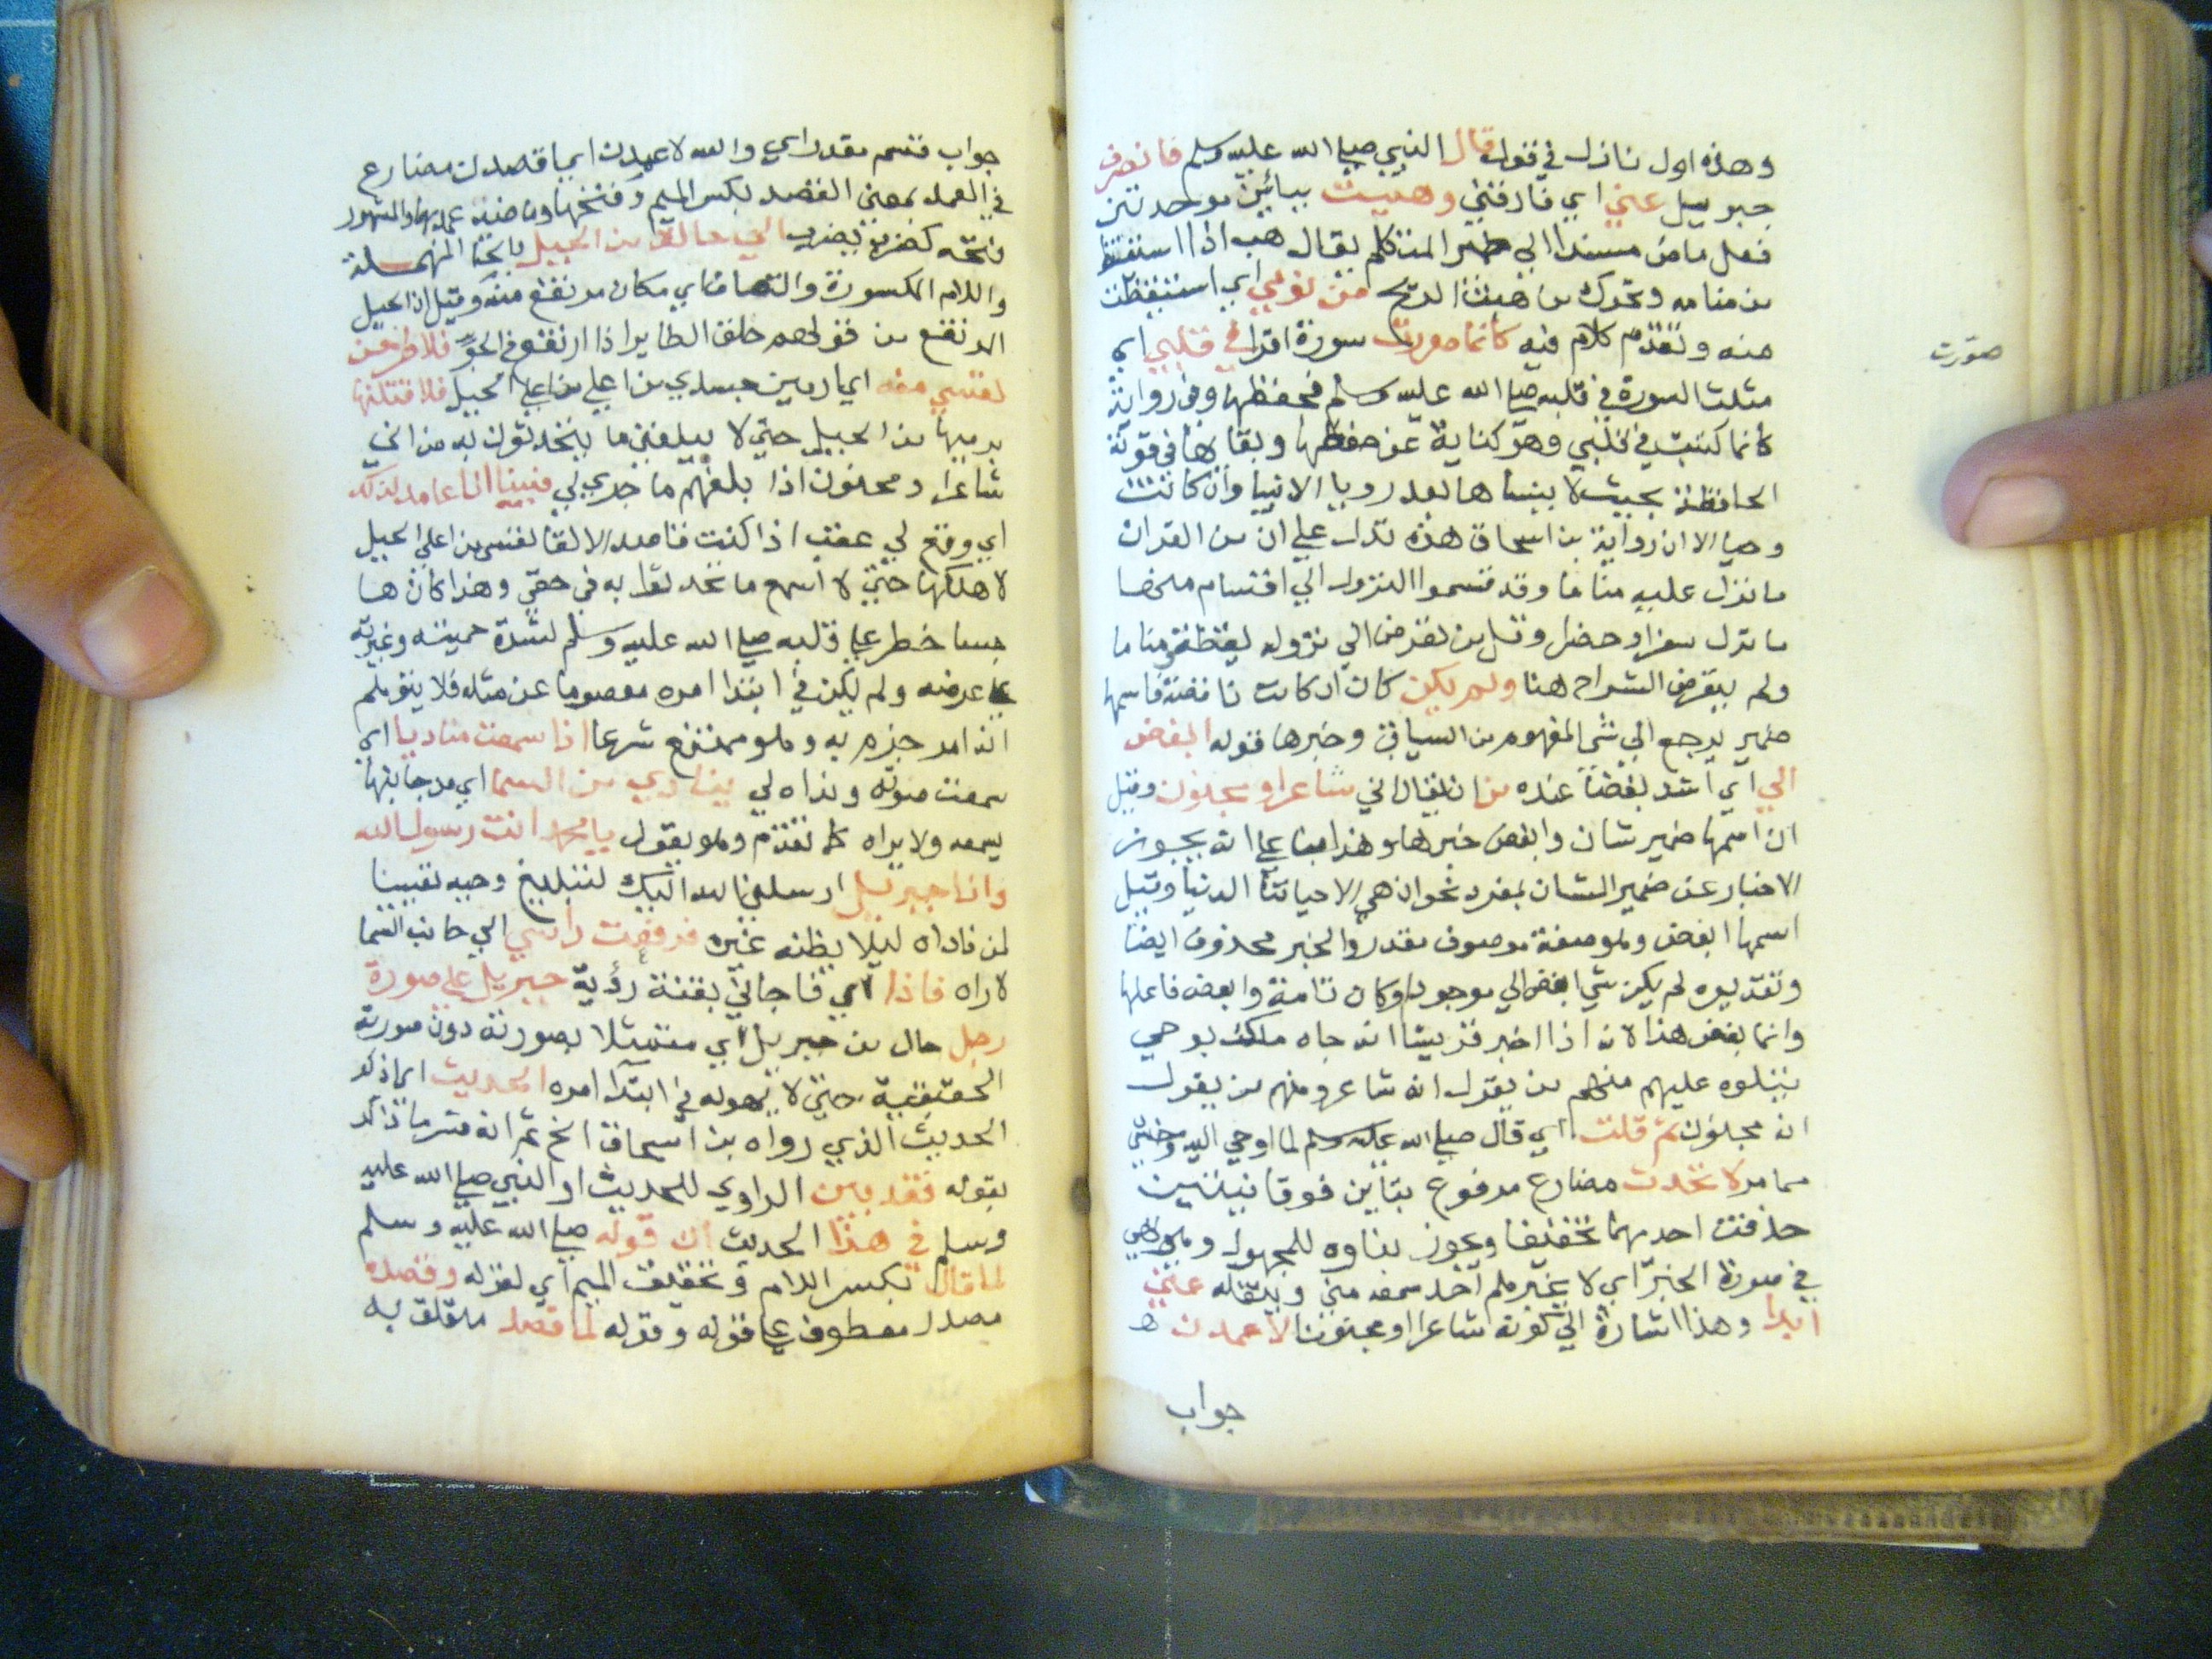 وهذه اول نازل في قوله قال النبي صلي الله عليه وسلم فانصرف
جبريل عني اي فارقني وهببت ببائين موحدتين
فعل ماض مسندا الي ضمير المتكلم يقال هب اذا استيقظ
من منامه وتحرك من هبت الريح من نومي اي استيقظت
منه وتقدم كلام فيه كانما صورت سورة اقرا في قلبي اي
صورت
مثلت السورة في قلبه صلي الله عليه وسلم فحفظها وفي رواية
كانما كتبت في قلبي وهو كناية عن حفظها وبقاها في قوته
الحافظة بحيث لا ينساها بعد رويا الانبيا وان كانت
وحيا الا ان رواية بن اسحاق هذه تدل علي ان من القران
ما نزل عليه مناما وقد قسموا النزول الي اقسام منها
ما نزل سفرا وحضرا وقل من تعرض الي نزوله يقظة ومناما
ولم يتعرض الشراح هنا ولم يكن كان ان كانت ناقصة فاسمها
ضمير يرجع الي شي المفهوم من السياق وخبرها قوله ابغض
الي اي اشد بغضا عنده من ان يقال اني شاعر او مجنون وقيل
ان اسمها ضمير شان وابغض خبرها وهذا مبنا علي انه يجوز
الاخبار عن ضمير الشان بمفرد نحو ان هي الا حياتنا الدنيا وقيل
اسمها ابغض وهو صفة موصوف مقدر والخبر محذوف ايضا
وتقديره لم يكن شي ابغض الي موجودا وكان تامة وابغض فاعلها
وانما بغض هذا لانه اذا اخبر قريشا انه جاه ملك بوحي
يتلوه عليهم منهم من يقول انه شاعر ومنهم من يقول
انه مجنون ثم قلت اي قال صلي الله عليه وسلم لما اوحي اليه وخشي
مما مر لا تحدث مضارع مرفوع بتاين فوقانيتين
حذفت احديهما تخفيفا ويجوز بناوه للمجهول وهو نهي
في صورة الخبر اي لا احد سمعه مني وينقله عني
ابدا وهذا اشارة الي كونه شاعرا او مجنونا لاعمدن
جواب
جواب قسم مقدر اي والله لاعمدن اي اقصدن مضارع
في العمد بمعني القصد بكس الميم وفتحها وماضيه عمد بها والمشهور
فتحه كضرب يضرب الي حالق من الجبل بالحا المهملة
واللام المكسورة والقاف اي مكان مرتفع منه وقيل اذا الجبل
المرتفع من قولهم حلق الطاير اذا ارتفع في الجو فلاطرحن
نفسي منه اي ارمين جسدي من اعلي من اعلي الجبل فلاقتلنها
برميها من الجبل حتي لا يبلغني ما يتحدثون به من اني
شاعر او مجنون اذا بلغهم ما جري لي فبينا انا عامد لذلك
اي وقع لي عقب اذا كنت قاصدا لالقا نفسي من اعلي الجبل
لاهلكها حتي لا اسمع ما تحدثوا به في حقي وهذا كان ها
جسا خطر علي قلبه صلي الله عليه وسلم لشدة حميته وغيرته
علي عرضه ولم يكن في ابتدا امره معصوما عن مثله فلا يتوهم
انه امر جزم به وهو ممتنع شرعا اذا سمعت مناديا اي
سمعت صوته ونداه لي ينادي من السما اي من جانبها
يسمعه ولا يراه كما تقدم وهو يقول يا محمد انت رسول الله
وانا جبريل ارسلني الله اليك لتبليغ وحيه تعيينا
لمن ناداه ليلا يظنه غيره فرفعت راسي الي جانب السما
لاراه فاذا اي فاجاني بغتة رؤية جبريل علي صورة
رجل حال من جبريل اي متمثلا بصورته دون صورته
الحقيقية حتي لا يهوله في ابتدا امره الحديث اي اذكر
الحديث الذي رواه بن اسحاق الخ ثم انه فسر ما ذكر
بقوله فقد بين الراوي للحديث او النبي صلي الله عليه
وسلم في هذا الحديث ان قوله صلي الله عليه وسلم
لما قال بكسر اللام وتخفيف الميم اي لقوله وقصده
مصدر معطوف علي قوله وقوله لما قصد متعلق به